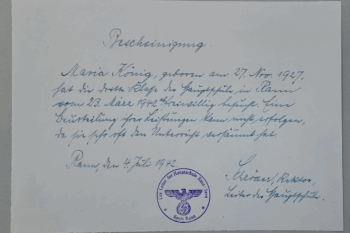 Bescheinigung
Maria König, geboren am 27. Nov. 1927,
hat die dritte Klasse der Hauptschule in Rann
vom 23. März 1942 freiwillig besucht. Eine
Beurteilung ihrer Leistungen kann nicht erfolgen,
da sie sehr oft den Unterricht versäumt hat.
Rann, den 4. Juli 1942.
Rektor,
Leiter der Hauptschule.
Der Leiter der Hauptschule Rann